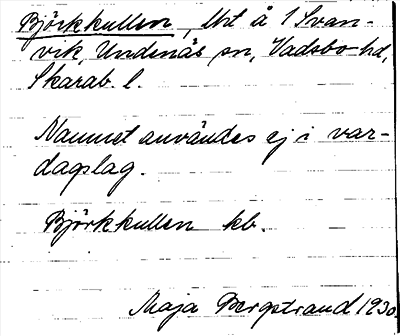 Björkkullen, Urt å 1 Svan-
vik, Undenäs sn, Vadsbo hd,
Skarab. l.
Namnet användes ej i var-
dagslag.
Björkkullen kb.
Maja Bergstrand 1930.